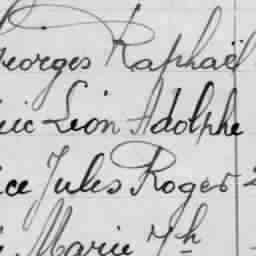 Georges Raphaël
ric Léon Adolphe
ice Jules Roger 2
Marie Th